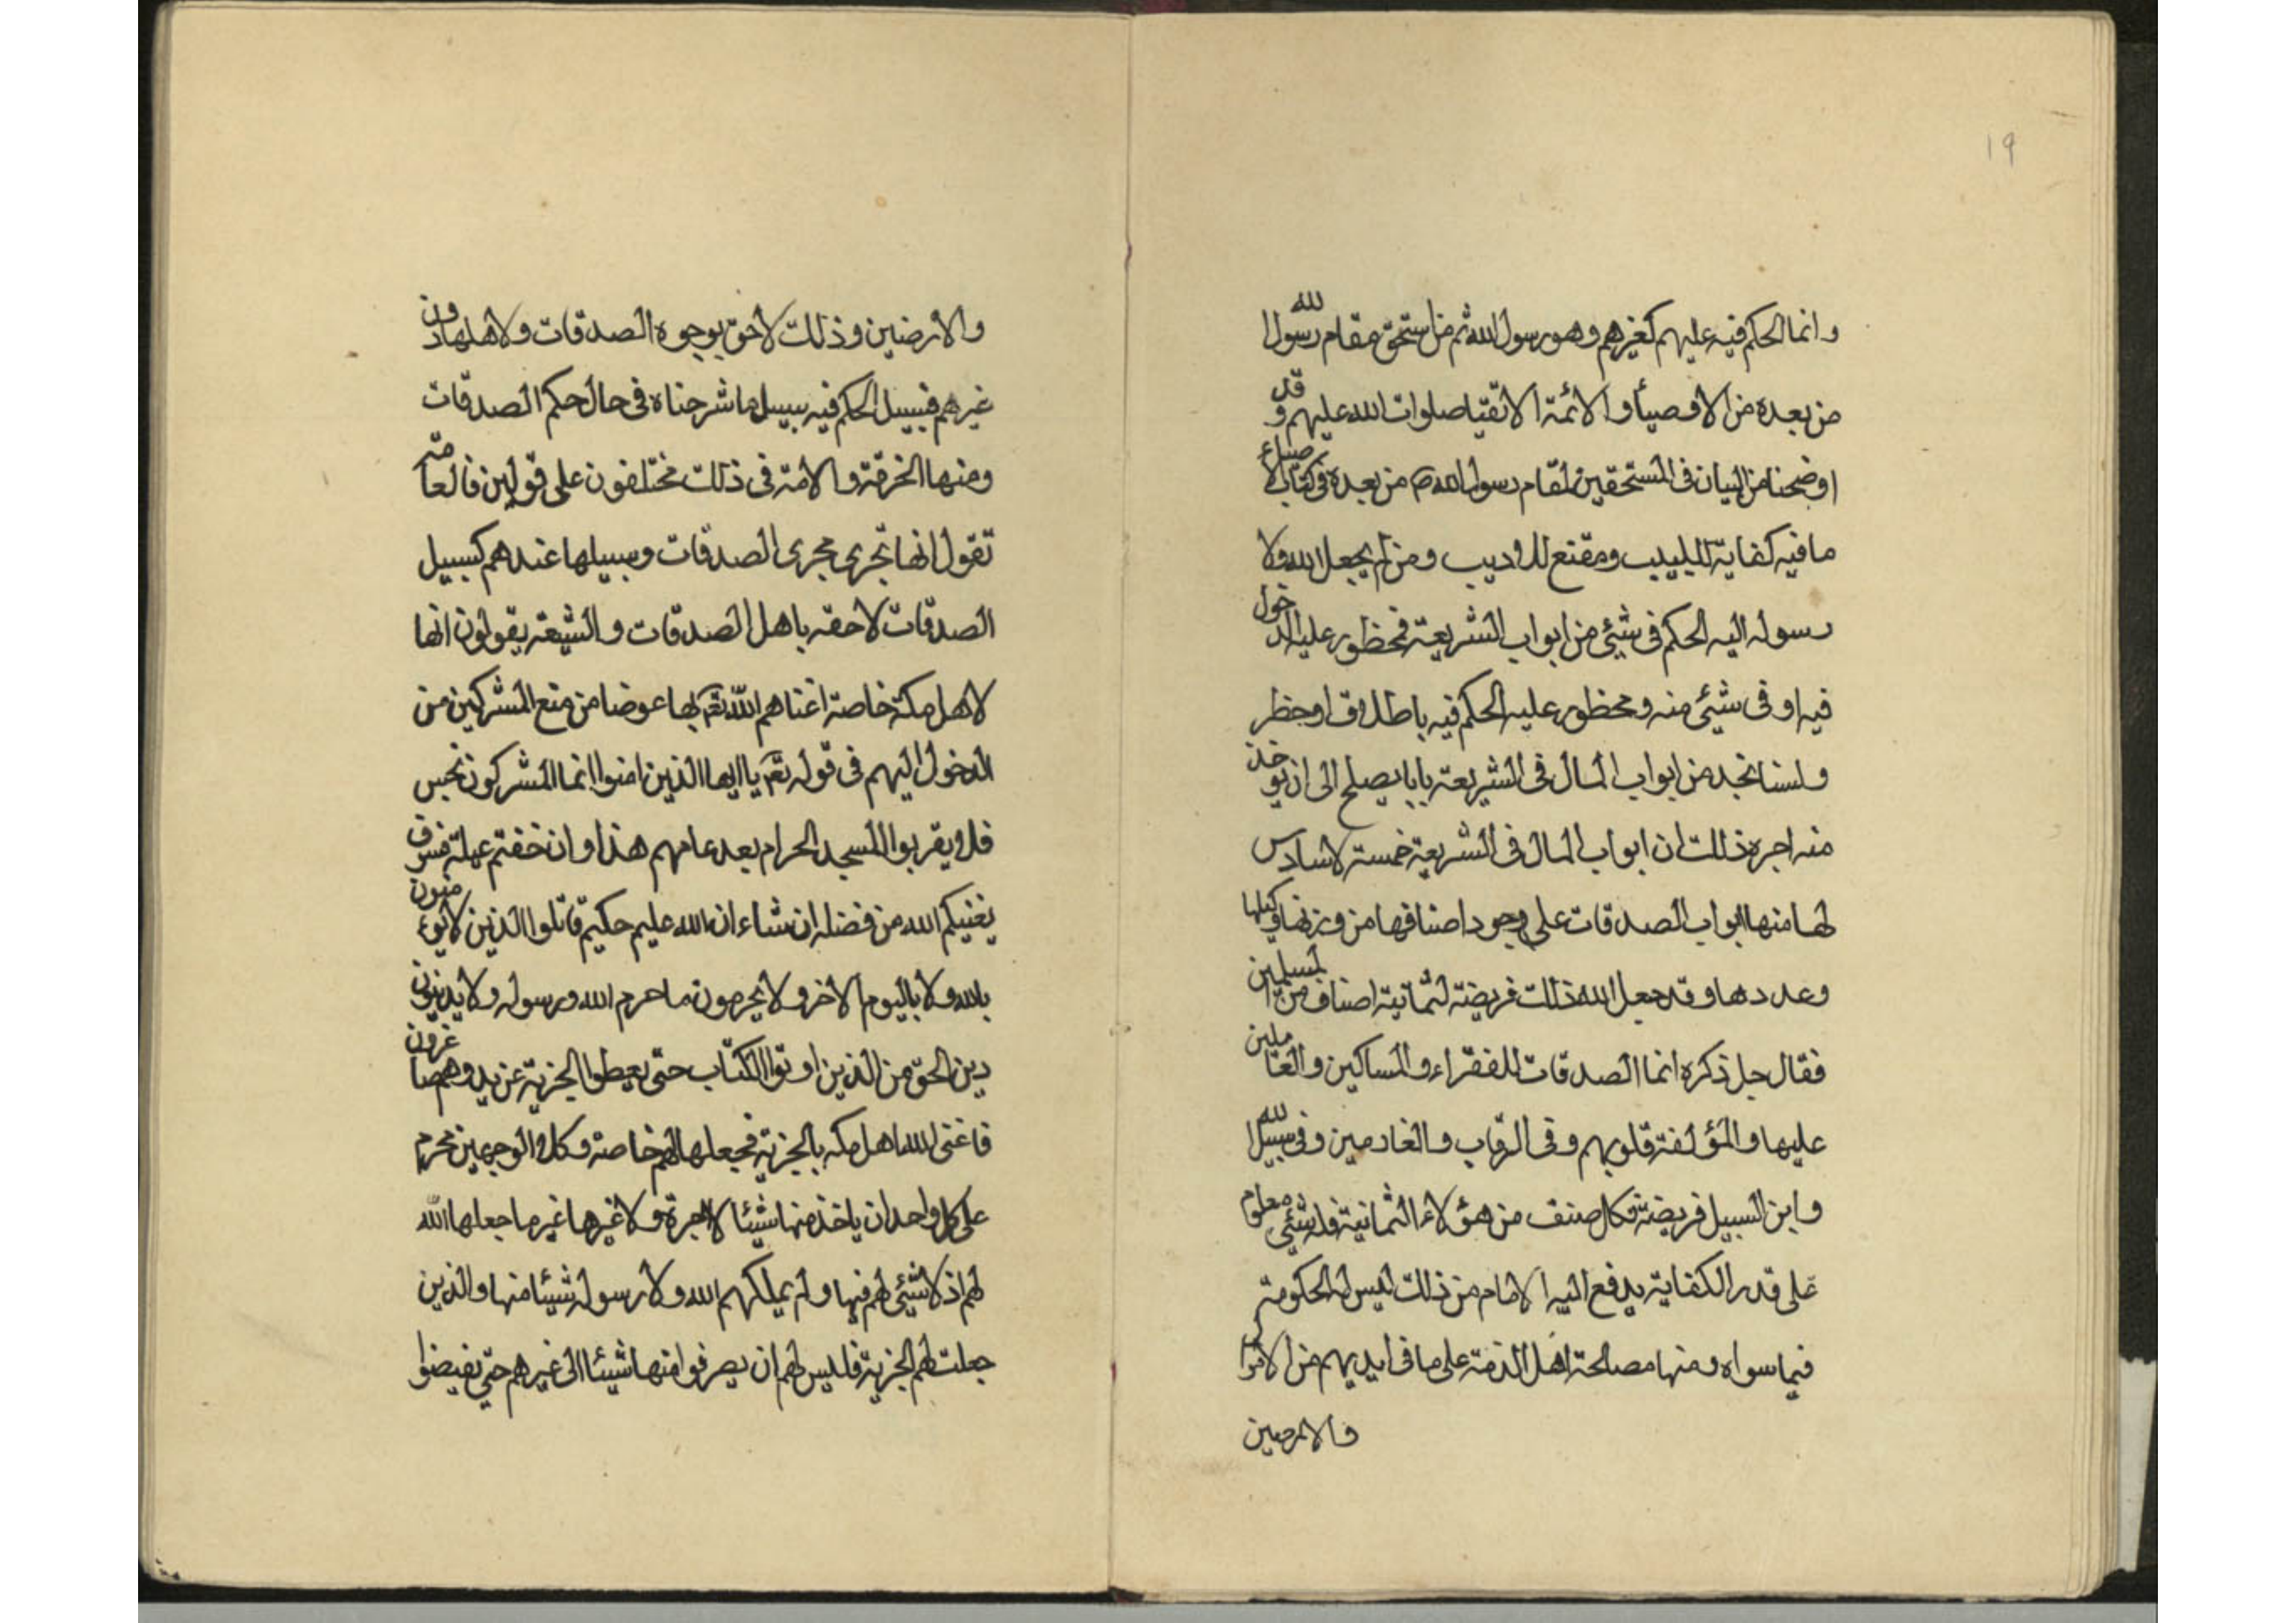 ١٩
وانما الحكم فيه عليهم كغيرهم وهو رسول الله ثم من استحق مقام رسول الله
من بعده من الاوصيأ والائمة الاتقيا صلوات الله عليهم وقد
اوضحنا من البيان فى المستحقين لمقام رسول الله ص من بعده فى كتاب الاوصياء
ما فيه كفاية لللبيب ومقنع للاديب ومن لم يجعل الله ولا
رسوله اليه الحكم فى شئ من ابواب الشريعة فمحظور عليه الدخول
فيه او فى شئ منه ومحظور عليه الحكم فيه باطلاق او حظر
ولسنا نجد من ابواب المال فى الشريعة بابا يصلح الى ان يوخذ
منه اجرة ذلك ان ابواب المال فى الشريعة خمسة لا سادس
لها منها ابواب الصدقات على وجود اصنافها من وزنها وكيلها
وعددها وقد جعل الله ذلك فريضة لثمانية اصناف من المسلمين
فقال جل ذكره انما الصدقات للفقراء والمساكين والعاملين
عليها والمؤلفة قلوبهم وفى الرقاب والغارمين وفى سبيل الله
وابن السبيل فريضة فكل صنف من هؤلاء الثمانية فله شئ معلوم
على قدر الكفاية يدفع اليه الامام من ذلك ليس له الحكومة
فيما سواه ومنها مصالحة اهل الذمة على ما فى ايديهم من الاموال
والارضين
والارضين وذلك لاحق بوجوه الصدقات ولاهلها دون
غيرهم فسبيل الحكم فيه سبيل ما شرحناه فى حال حكم الصدقات
ومنها الخزية والامة فى ذلك مختلفون على قولين فالعامة
تقول انها تجرى مجرى الصدقات وسبيلها عندهم كسبيل
الصدقات لاحقة باهل الصدقات والشيعة يقولون انها
لاهل مكة خاصة اغناهم الله تعم بها عوضا من منع المشركين من
الدخول اليهم فى قوله تعم يا ايها الذين امنوا انما المشركون نجس
فلا يقربوا المسجد الحرام بعد عامهم هذا وان خفتم عيلة فسوف
يغنيكم الله من فضله ان شاء ان الله عليم حكيم قاتلوا الذين لا يؤمنون
بالله ولا باليوم الاخر ولا يحرمون ما حرم الله ورسوله ولا يدينون
دين الحق من الذين اوتوا الكتاب حتى يعطوا الجزية عن يد وهم صاغرون
فاغنى الله اهل مكه بالجزية فجعلها لهم خاصة وكلا الوجهين محرم
على كل واحد ان ياخذ منها شيئا لاجرة ولا غيرها غير ما جعلها الله
لهم اذ لا شئ لهم فيها ولم يملكهم الله ولا رسوله شيئا منها والذين
جعلت لهم الجزية فليس لهم ان يصرفوا منها شيئا الى غيرهم حتى يقبضوا